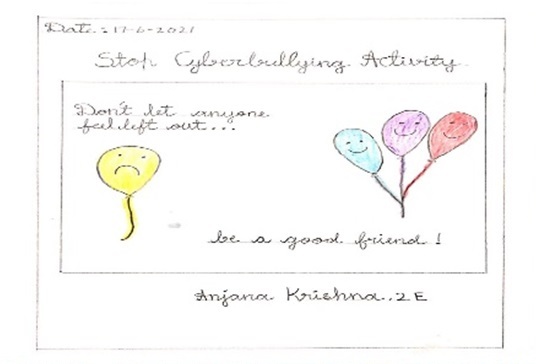 Date: 17-6-2021
Stop Cyberbullying Activity
Don't let anyone
fel left out...
be a good friend!
Anjana Krishna. 2E